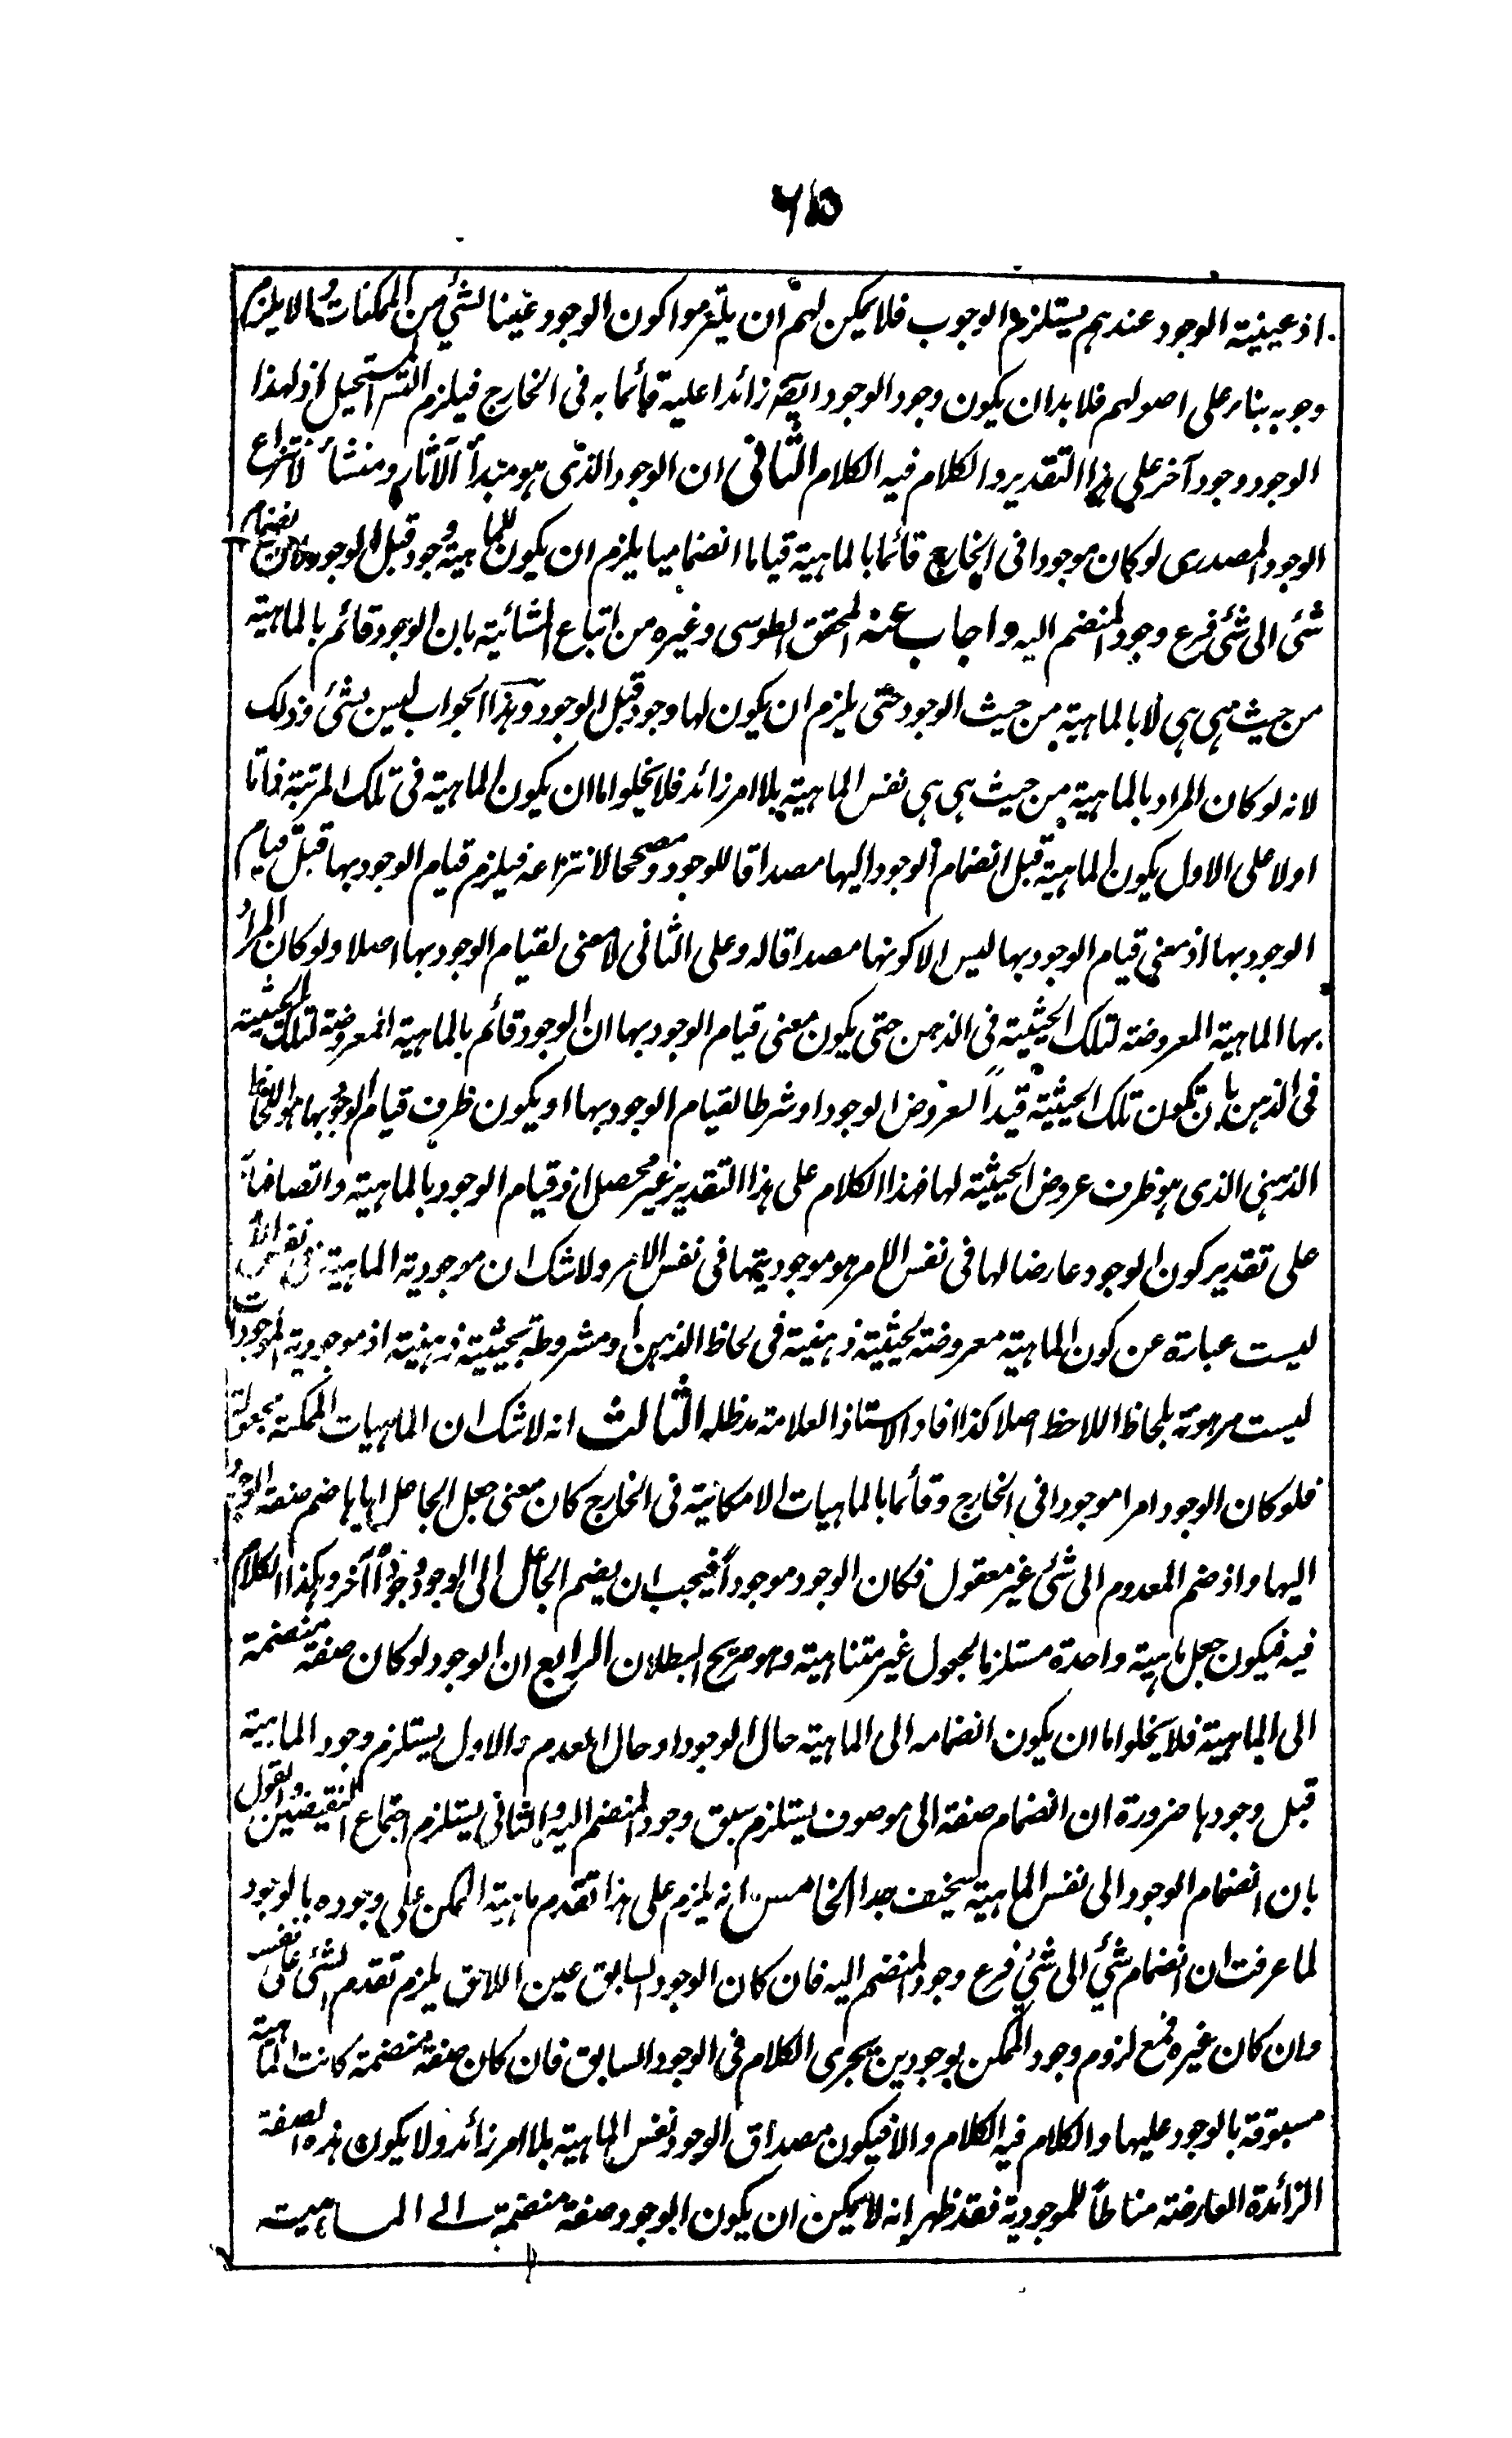 ٦١٥
اذ عينية الوجود عندهم يستلزم الوجوب فلا يمكن لهم ان يلتزموا كون الوجود عينا لشئ من الممكنات والا يلزم
وجوبه بناء على اصولهم فلا بد ان يكون وجود الوجود ايضه زائدا عليه قائما به فى الخارج فيلزم التس المستحيل اذ لهذا
الوجود وجود آخر على هذا التقدير والكلام فيه الكلام الثانى ان الوجود الذى هو مبدأ الآثار ومنشأ لانتزاع
الوجود المصدرى لو كان موجودا فى الخارج قائما بالماهية قياما انضماميا يلزم ان يكون للماهية وجود قبل الوجود لان انضمام
شئ الى شئ فرع وجود المنضم اليه واجاب عنه المحقق الطوسى وغيره من اتباع المشائية بان الوجود قائم بالماهية
من حيث هى هى لا بالماهية من حيث الوجود حتى يلزم ان يكون لها وجود قبل الوجود وهذا الجواب ليس بشئ وذلك
لانه لو كان المراد بالماهية من حيث هى هى نفس الماهية بلا امر زائد فلا يخلو اما ان يكون الماهية فى تلك المرتبة ذاتا
اولا على الاول يكون الماهية قبل انضمام الوجود اليها مصداقا للوجود ومصححا لانتزاعه فيلزم قيام الوجود بها قبل قيام
الوجود بها اذ معنى قيام الوجود بها ليس الا كونها مصداقا له وعلى الثانى لا معنى لقيام الوجود بها اصلا ولو كان المراد
بها الماهية المعروضة لتلك الحيثية فى الذهن حتى يكون معنى قيام الوجود بها ان الوجود قائم بالماهية المعروضة لتلك الحيثية
فى الذهن بان تكون تلك الحيثية قيدا لمعروض الوجود او شرطا لقيام الوجود بها او يكون ظرف قيام الوجود بها هو اللحاظ
الذهنى الذى هو ظرف عروض الحيثية لها فهذا الكلام على هذا التقدير غير محصل اذ قيام الوجود بالماهية واتصافها به
على تقدير كون الوجود عارضا لها فى نفس الامر هو موجوديتها فى نفس الامر ولا شك ان موجودية الماهية فى نفس الامر
ليست عبارة عن كون الماهية معروضة لحيثية ذهنية فى لحاظ الذهن او مشروطة بحيثية ذهنية اذ موجودية الموجودات
ليست مرهونة بلحاظ اللاحظ اصلا كذا افاد الاستاذ العلامة مد ظله الثالث انه لا شك ان الماهيات الممكنة مجعولة
فلو كان الوجود امرا موجودا فى الخارج وقائما بالماهيات الامكانية فى الخارج كان معنى جعل الجاعل اياها ضم صفة الوجود
اليها واذ ضم المعدوم الى شئ غير معقول فكان الوجود موجودا فيجب ان يضم الجاعل الى الوجود وجودا آخر وهكذا الكلام
فيه فيكون جعل ماهية واحدة مستلزما لجعول غير متناهية وهو صريح البطلان الرابع ان الوجود لو كان صفة منضمة
الى الماهية فلا يخلو اما ان يكون انضمامه الى الماهية حال الوجود او حال العدم والاول يستلزم وجود الماهية
قبل وجودها ضرورة ان انضمام صفة الى موصوف يستلزم سبق وجود المنضم اليه والثانى يستلزم اجتماع النقيضين والقول
بان انضمام الوجود الى نفس الماهية سخيف جدا الخامس انه يلزم على هذا تقدم ماهية الممكن على وجوده بالوجود
لما عرفت ان انضمام شئ الى شئ فرع وجود المنضم اليه فان كان الوجود السابق عين اللاحق يلزم تقدم الشئ على نفسه
وان كان غيره فمع لزوم وجود الممكن بوجودين يجرى الكلام فى الوجود السابق فان كان صفة منضمة كانت الماهية
مسبوقة بالوجود عليها والكلام فيه الكلام والا فيكون مصداق الوجود نفس الماهية بلا امر زائد ولا يكون هذه الصفة
الزائدة العارضة مناطا للموجودية فقد ظهر انه لا يمكن ان يكون الوجود صفة منضمة الى الماهية